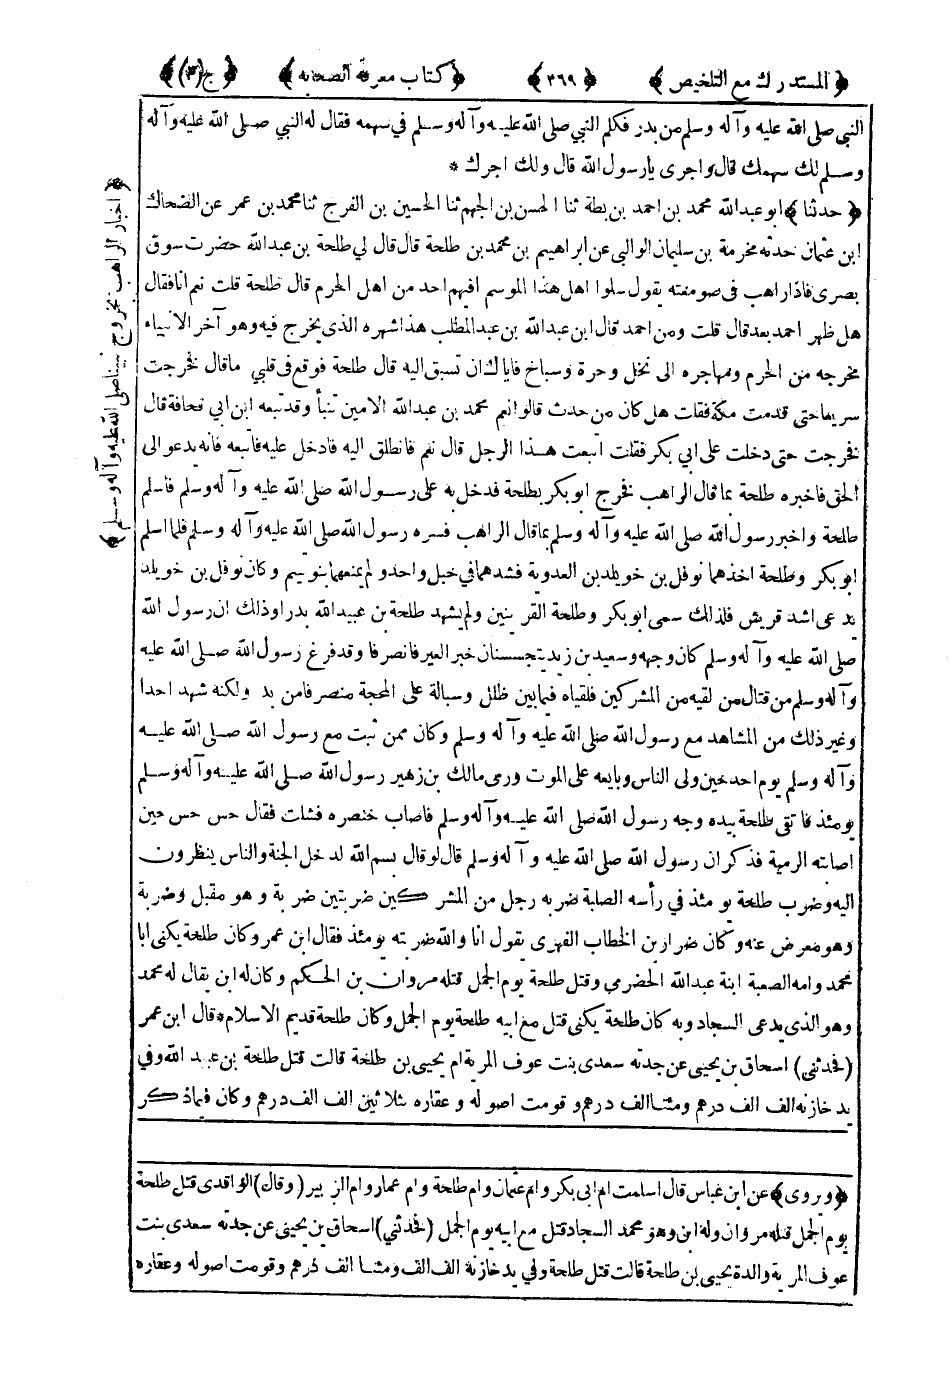 ﴿ المستدرك مع التلخيص ﴾ ﴿ ٣٦٩ ﴾ ﴿ كتاب معرفة الصحابه ﴾ ﴿ ج (٣) ﴾
النبي صلى الله عليه وآله وسلم من بدر فكلم النبي صلى الله عليه وآله وسلم في سهمه فقال له النبي صلى الله عليه وآله
وسلم لك سهمك قال واجرى يا رسول الله قال ولك اجرك *
﴿ حدثنا ﴾ ابو عبد الله محمد بن احمد بن بطة ثنا الحسن بن الجهم ثنا الحسين بن الفرج ثنا محمد بن عمر عن الضحاك
ابن عثمان حدثه مخرمة بن سليمان الوالبي عن ابراهيم بن محمد بن طلحة قال قال لي طلحة بن عبد الله حضرت سوق
بصرى فاذا راهب في صومعته يقول سلوا اهل هذا الموسم افيهم احد من اهل الحرم قال طلحة قلت نعم انا فقال
هل ظهر احمد بعد قال قلت ومن احمد قال ابن عبد الله بن عبد المطلب هذا شهره الذي يخرج فيه وهو آخر الانبياء
مخرجه من الحرم ومهاجره الى نخل وحرة وسباخ فاياك ان تسبق اليه قال طلحة فوقع في قلبي ما قال فخرجت
سريعا حتى قدمت مكة فقلت هل كان من حدث قالوا نعم محمد بن عبد الله الامين تنبأ وقد تبعه ابن ابي قحافة قال
فخرجت حتى دخلت على ابي بكر فقلت اتبعت هذا الرجل قال نعم فانطلق اليه فادخل عليه فاتبعه فانه يدعو الى
الحق فاخبره طلحة بما قال الراهب فخرج ابو بكر بطلحة فدخل به على رسول الله صلى الله عليه وآله وسلم فاسلم
طلحة واخبر رسول الله صلى الله عليه وآله وسلم بما قال الراهب فسره رسول الله صلى الله عليه وآله وسلم فلما اسلم
ابو بكر وطلحة اخذهما نوفل بن خويلد بن العدوية فشدهما في حبل واحد ولم يمنعهما بنو تيم وكان نوفل بن خويلد
يدعى اشد قريش فلذلك سمى ابو بكر وطلحة القرينين ولم يشهد طلحة بن عبيد الله بدرا وذلك ان رسول الله
صلى الله عليه وآله وسلم كان وجهه وسعيد بن زيد يتجسسان خبر العير فانصرفا وقد فرغ رسول الله صلى الله عليه
وآله وسلم من قتال من لقيه من المشركين فلقياه فيما بين ظلل وسبالة على المحجة منصرفا من بدر ولكنه شهد احدا
وغير ذلك من المشاهد مع رسول الله صلى الله عليه وآله وسلم وكان ممن ثبت مع رسول الله صلى الله عليه
وآله وسلم يوم احد حين ولى الناس وبايعه على الموت ورمى مالك بن زهير رسول الله صلى الله عليه وآله وسلم
يومئذ فاتقى طلحة بيده وجه رسول الله صلى الله عليه وآله وسلم فاصاب خنصره فشلت فقال حس حس حين
اصابته الرمية فذكر ان رسول الله صلى الله عليه وآله وسلم قال لو قال بسم الله لدخل الجنة والناس ينظرون
اليه وضرب طلحة يومئذ في رأسه الصلبة ضربه رجل من المشركين ضربتين ضربة وهو مقبل وضربة
وهو معرض عنه وكان ضرار بن الخطاب الفهري يقول انا والله ضربته يومئذ فقال ابن عمر وكان طلحة يكنى ابا
محمد وامه الصعبة ابنة عبد الله الحضرمي وقتل طلحة يوم الجمل قتله مروان بن الحكم وكان له ابن يقال له محمد
وهو الذي يدعى السجاد وبه كان طلحة يكنى قتل مع ابيه طلحة يوم الجمل وكان طلحة قديم الاسلام * قال ابن عمر
(فحدثني) اسحاق بن يحيى عن جدته سعدى بنت عوف المرية ام يحيى بن طلحة قالت قتل طلحة بن عبيد الله وفي
يد خازنه الف الف درهم ومئتا الف درهم وقومت اصوله وعقاره ثلاثين الف الف درهم وكان فيما ذكر
﴿ اخبار الراهب بخروج نبينا صلى الله عليه وآله وسلم ﴾
﴿ ويروى ﴾ عن ابن عباس قال اسلمت ام ابي بكر وام عثمان وام طلحة وام عمار وام الزبير (وقال) الواقدى قتل طلحة
يوم الجمل قتله مروان وله ابن وهو محمد السجاد قتل مع ابيه يوم الجمل (فحدثني) اسحاق بن يحيى عن جدته سعدى بنت
عوف المرية والدة يحيى بن طلحة قالت قتل طلحة وفي يد خازنه الف الف ومئتا الف درهم وقومت اصوله وعقاره